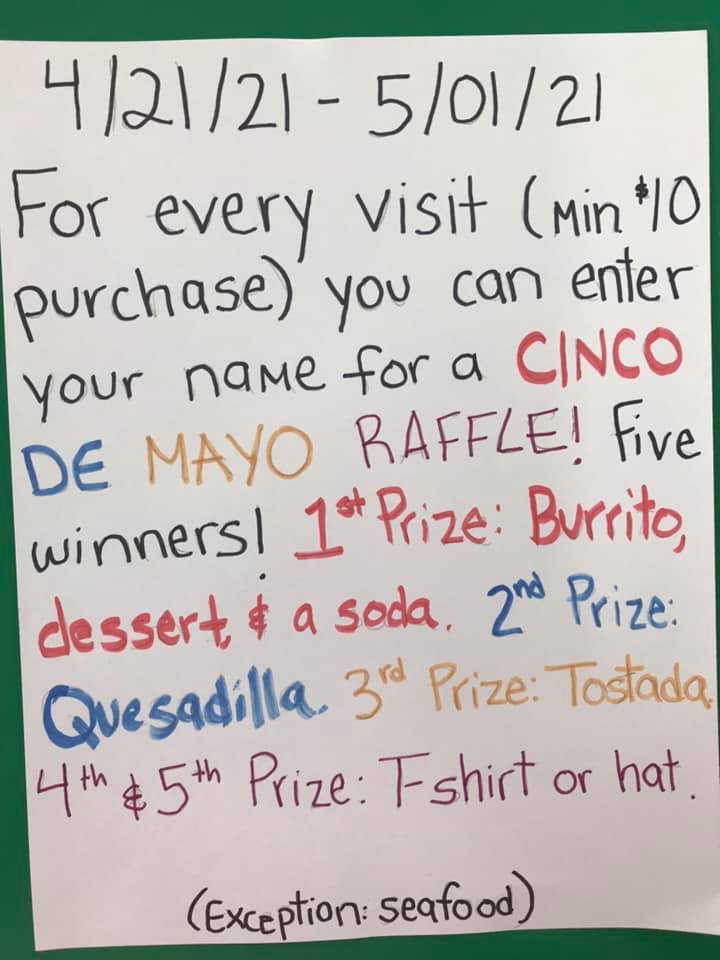 4/21/21 - 5/01/21
For every visit (Min $10
purchase) you can enter
your name for a CINCO
DE MAYO RAFFLE! Five
winners! 1st Prize: Burrito,
dessert, & a soda. 2nd Prize:
Quesadilla. 3rd Prize: Tostada.
4th & 5th Prize: T-shirt or hat.
(Exception: seafood)